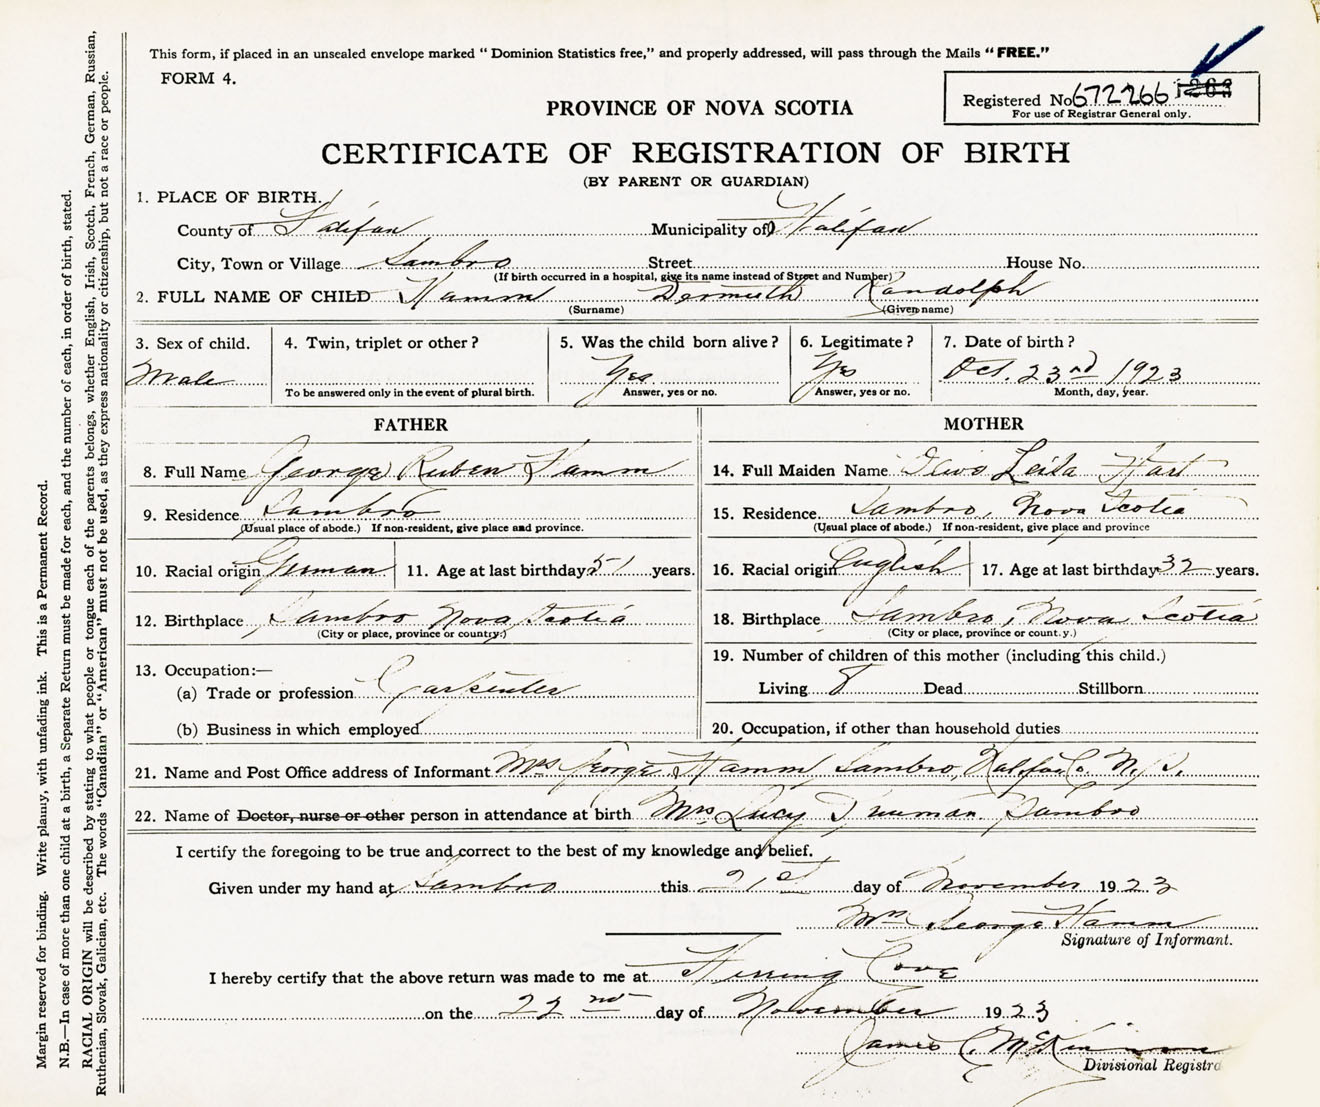 This form, if placed in an unsealed envelope marked “ Dominion Statistics free,” and properly addressed, will pass through the Mails “ FREE.”
FORM 4.
Registered No 672266 1263
For use of Registrar General only.
PROVINCE OF NOVA SCOTIA
CERTIFICATE OF REGISTRATION OF BIRTH
(BY PARENT OR GUARDIAN)
1. PLACE OF BIRTH.
County of Halifax Municipality of Halifax
City, Town or Village Sambro Street House No.
(If birth occurred in a hospital, give its name instead of Street and Number)
2. FULL NAME OF CHILD Hamm Dermuth Randolph
(Surname) (Given name)
3. Sex of child. 4. Twin, triplet or other? 5. Was the child born alive? 6. Legitimate? 7. Date of birth?
Male Yes Yes Oct. 23rd 1923
To be answered only in the event of plural birth. Answer, yes or no. Answer, yes or no. Month, day, year.
FATHER MOTHER
8. Full Name George Ruben Hamm 14. Full Maiden Name Leida Hart
9. Residence Sambro 15. Residence Sambro, Nova Scotia
(Usual place of abode.) If non-resident, give place and province. (Usual place of abode.) If non-resident, give place and province
10. Racial origin German 11. Age at last birthday 51 years. 16. Racial origin English 17. Age at last birthday 32 years.
12. Birthplace Sambro Nova Scotia 18. Birthplace Sambro, Nova Scotia
(City or place, province or country.) (City or place, province or count.y.)
13. Occupation:— 19. Number of children of this mother (including this child.)
(a) Trade or profession Carpenter Living 8 Dead Stillborn
(b) Business in which employed 20. Occupation, if other than household duties
21. Name and Post Office address of Informant Mrs George Hamm Sambro, Halifax Co. N. S.
22. Name of Doctor, nurse or other person in attendance at birth Mrs Lucy Truman Sambro
I certify the foregoing to be true and correct to the best of my knowledge and belief.
Given under my hand at Sambro this 21st day of November 1923
Mrs George Hamm
Signature of Informant.
I hereby certify that the above return was made to me at Herring Cove
on the 22nd day of November 1923
James C.
Divisional Registra
Margin reserved for binding. Write plainly, with unfading ink. This is a Permanent Record.
N.B.—In case of more than one child at a birth, a Separate Return must be made for each, and the number of each, in order of birth, stated.
RACIAL ORIGIN will be described by stating to what people or tongue each of the parents belongs, whether English, Irish, Scotch, French, German, Russian,
Ruthenian, Slovak, Galician, etc. The words “Canadian” or “American” must not be used, as they express nationality or citizenship, but not a race or people.